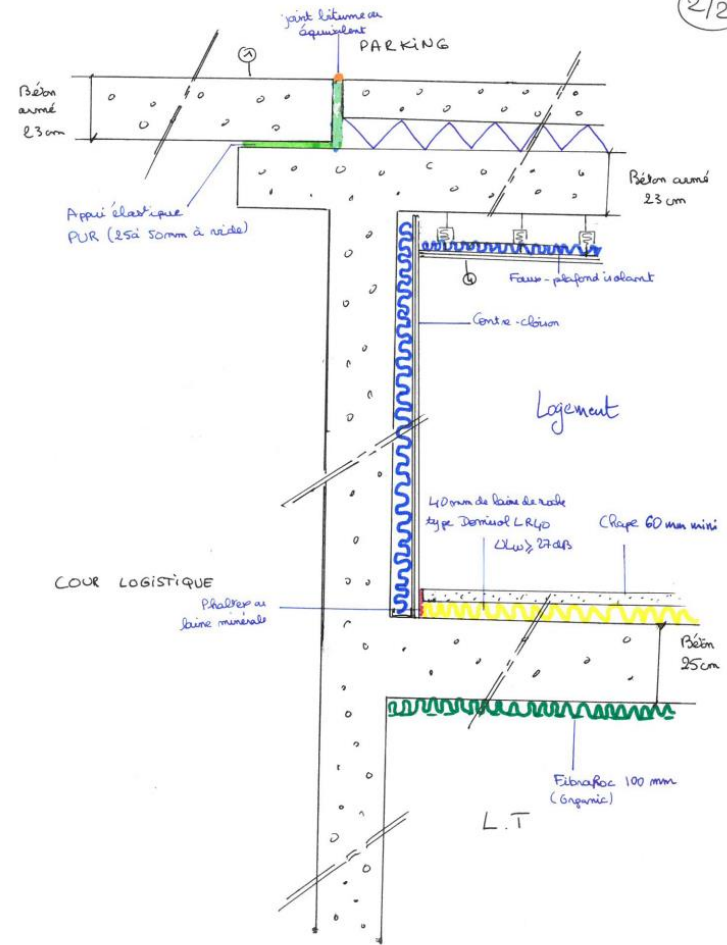 2/2
joint bitume ou
équivalent
PARKING
1
Béton
armé
23 cm
Béton armé
23 cm
Appui élastique
PUR (25 à 50mm à vide)
4
Faux-plafond isolant
Contre-cloison
Logement
40 mm de laine de roche
type Domisol LR40
ΔLw ≥ 27 dB
Chape 60 mm mini
COUR LOGISTIQUE
Phaltex ou
laine minérale
Béton
25 cm
FibraRoc 100 mm
(Organic)
L.T